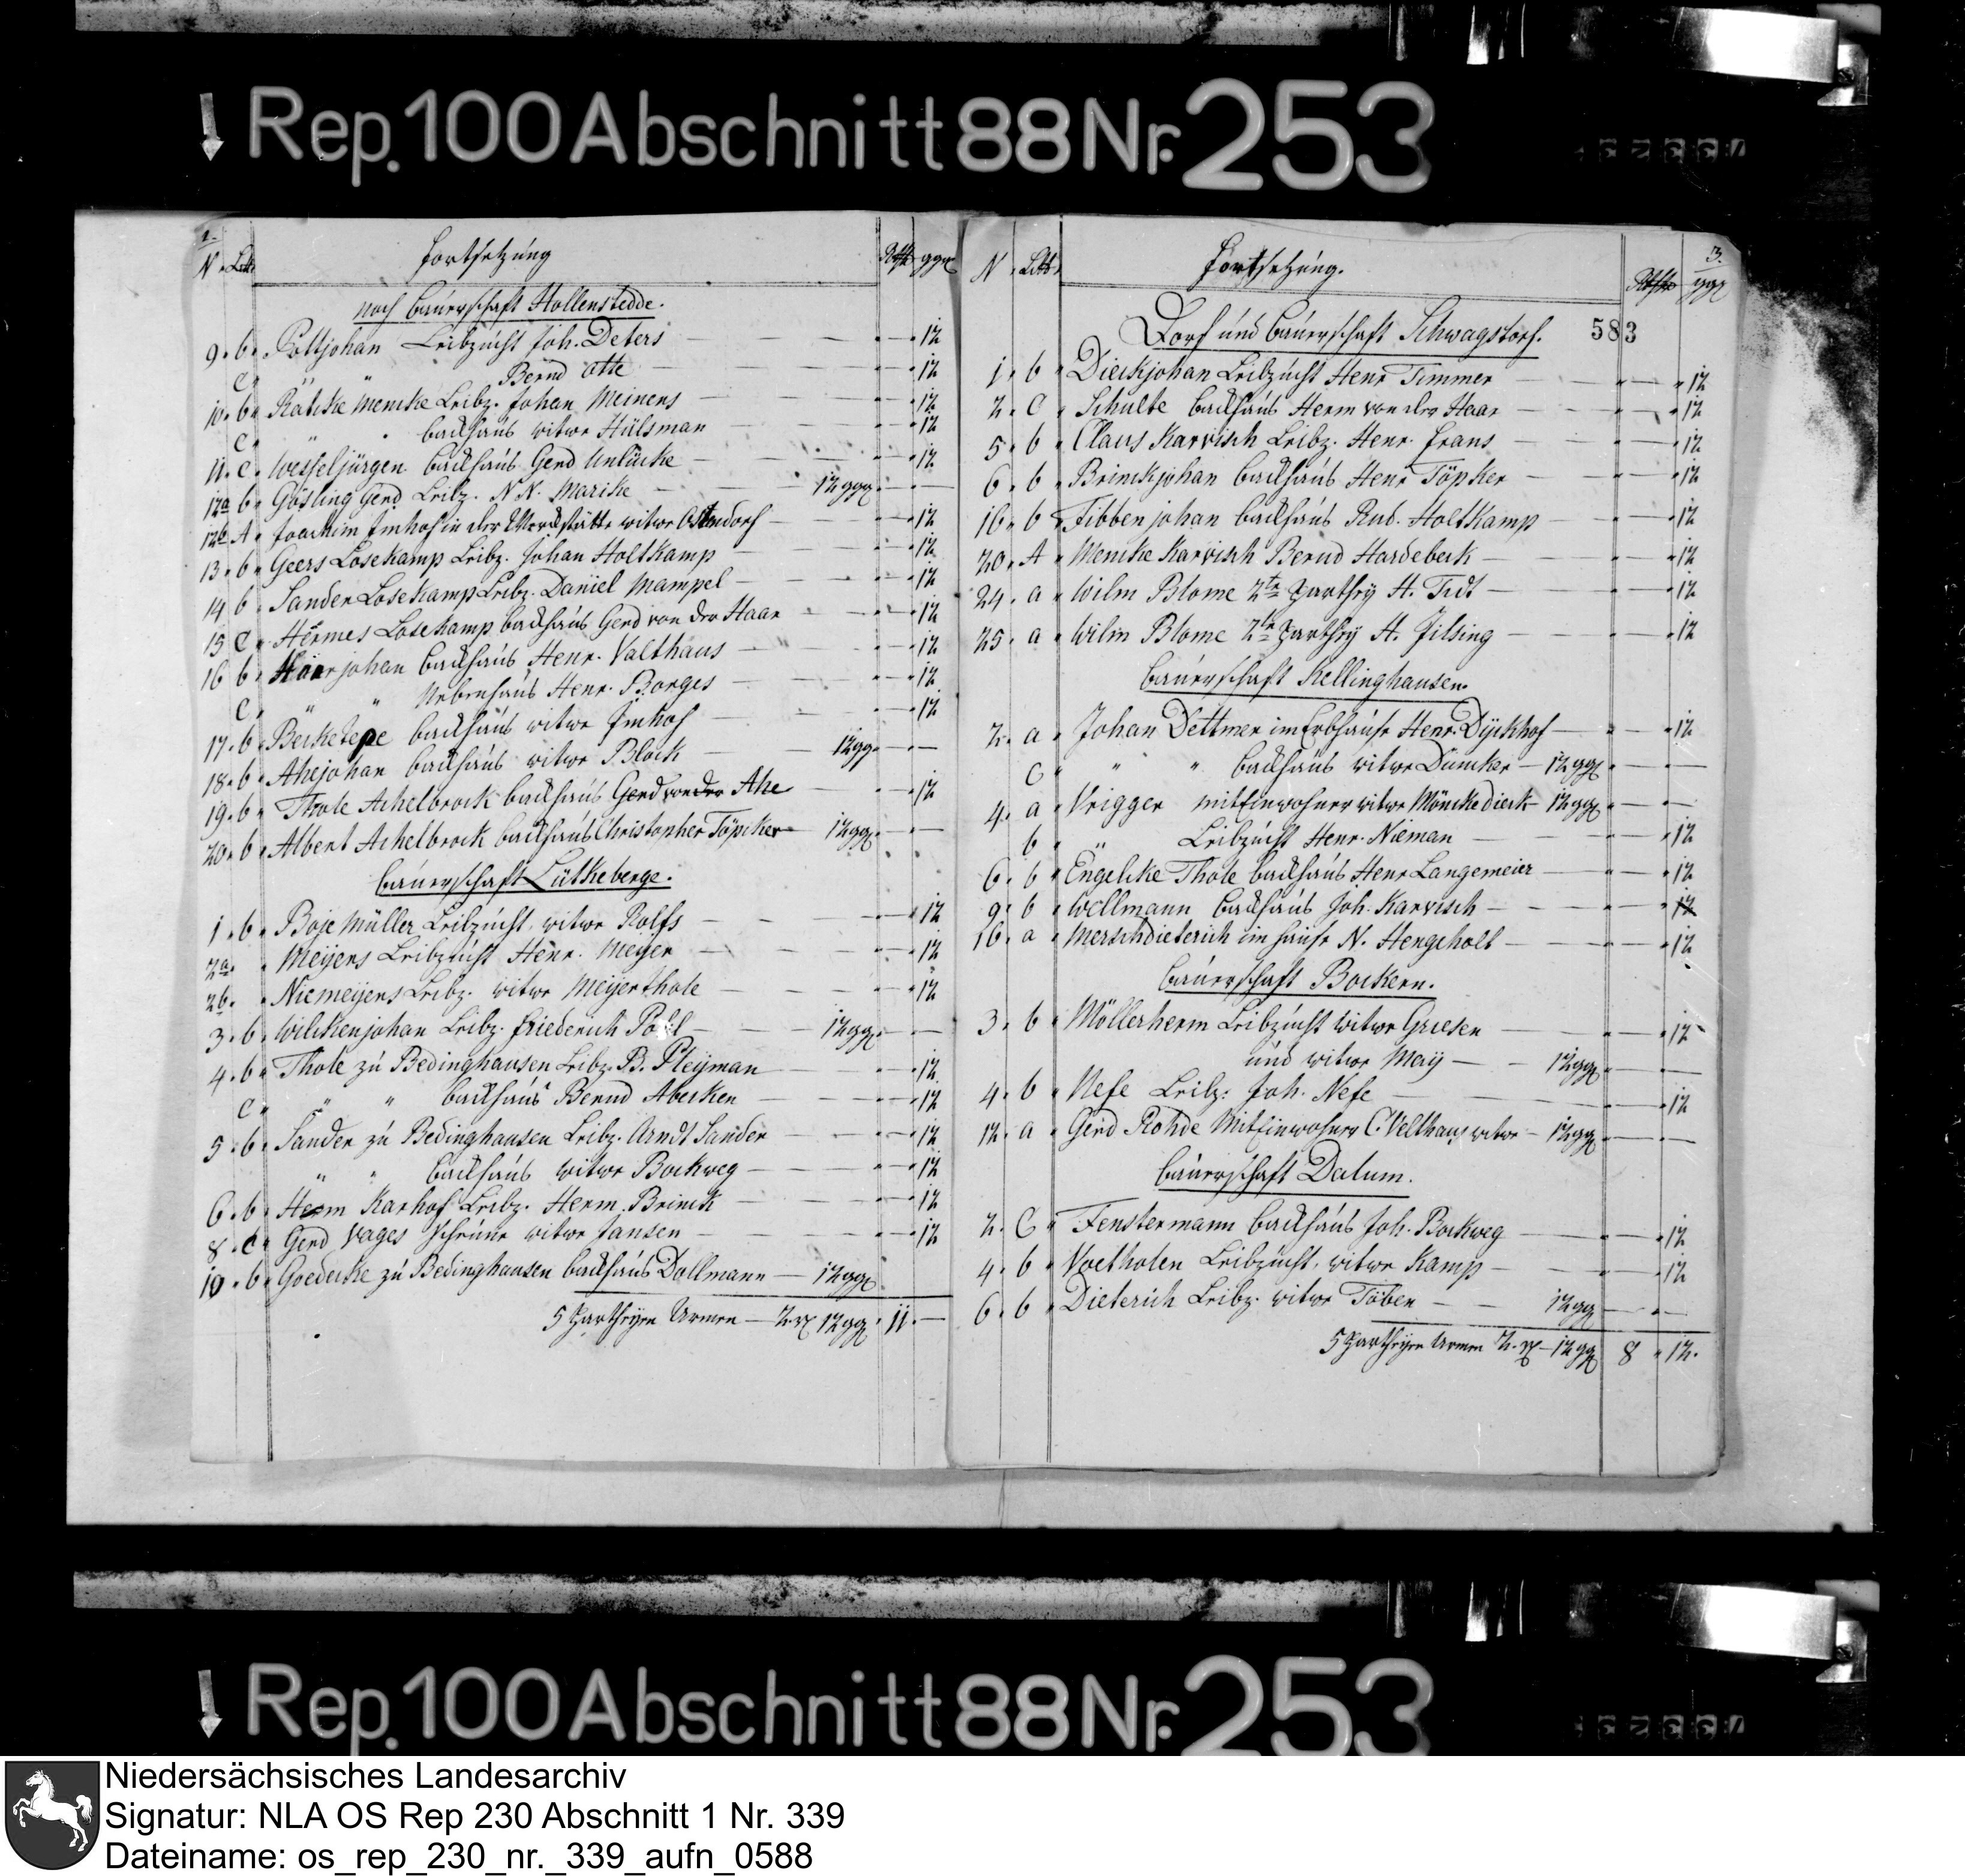 Rep. 100 Abschnitt 88 Nr. 253
2.
N Litt. Fortsetzung Rthlr ggr
noch Bauerschaft Hollenstedde.
9. b. Pottjohan Leibzucht Joh. Deters 12
C. " " Bernd Otte 12
10. b. Rätcke Mencke Leibz. Johan Meiners 12
C. " " Backhaus witwe Hülsman 12
11. C. Wesseljürgen Backhaus Gerd Unlücke 12
12a b Gösling Gerd Leibz. N.N. Marike 12 ggr
12b A. Joachim Imhof in der Werckstätte witwe Ostendorf 12
13. b. Geers Losekamp Leibz. Johan Holtkamp 12
14 b. Sander Losekamp Leibz. Daniel Mampel 12
15 C. Hermes Losekamp Backhaus Gerd von der Haar 12
16 b. Haarjohan Backhaus Henr. Valthaus 12
C. " " Nebenhaus Henr. Borges 12
17. b. Berketepe Backhaus witwe Imhof 12
18. b. Ahejohan Backhaus witwe Block 12 gg
19. b. Thole Achelbrock Backhaus Gerd von der Ahe 12
20. b. Albert Achelbrock Backhaus Christopher Töpcker 12 gg
Bauerschaft Lütkeberge.
1. b. Boje Müller Leibzucht witwe Rolfs 12
2a. Meyers Leibzucht Henr. Meyer 12
2b. Niemeyers Leibz. witwe Meyerthole 12
3. b. Wilckenjohan Leibz. Friederich Pohl 12 gg
4. b. Thole zu Bedinghausen Leibz. B. Pleyman 12
C. " " Backhaus Bernd Abecken 12
5. b. Sander zu Bedinghausen Leibz. Arndt Sander 12
" " Backhaus witwe Bockweg 12
6. b. Herm Karhof Leibz. Herm. Brinck 12
8. C. Gerd Vages Scheune witwe Jansen 12
10. b. Goedecke zu Bedinghausen Backhaus Dollmann 12 gg
5 Partheyen Armen 2 r 12 gg 11. —
3.
N. Litt. Fortsetzung. Rthlr ggr
583
Dorf und Bauerschaft Schwagstorf.
1. b. Dieckjohan Leibzucht Henr Timmer 12
2. C. Schulte Backhaus Herm von der Haar 12
5. b. Claus Karvisch Leibz. Henr. Frans 12
6. b. Brinckjohan Backhaus Henr Töpker 12
16. b. Tibbenjohan Backhaus Rud. Holtkamp 12
20. A. Mencke Karvisch Bernd Hardebeck 12
24. a. Wilm Blome 2te Parthey H. Tidt 12
25. a. Wilm Blome 2te Parthey H. Jilsing 12
Bauerschaft Kellinghausen.
2. a. Johan Dettmer im Erbhause Henr. Dyckhof 12
C. " " Backhaus witwe Duncker 12 gg
4. a. Vrigger Miteinwohner witwe Mönckedieck 12 gg
b. " Leibzucht Henr. Nieman 12
6. b. Engelcke Thole Backhaus Henr Langemeier 12
9. b. Wellmann Backhaus Joh. Karvisch 12
16. a. Merschdieterich im Hause N. Hengeholt 12
Bauerschaft Bockern.
3. b. Möllerherm Leibzucht witwe Griesen 12
und witwe May 12 gg
4. b. Nefe Leibz: Joh. Nefe 12
12. a. Gerd Rohde Miteinwohner C. Velthaus witwe 12 gg
Bauerschaft Dalum.
2. C. Fenstermann Backhaus Joh. Bockweg 12
4. b. Voetholen Leibzucht witwe Kamp 12
6. b. Dieterich Leibz. witwe Töben 12 gg
5 Partheyen Armen 2. r 12 gg 8 12.
Rep. 100 Abschnitt 88 Nr. 253
Niedersächsisches Landesarchiv
Signatur: NLA OS Rep 230 Abschnitt 1 Nr. 339
Dateiname: os_rep_230_nr._339_aufn_0588